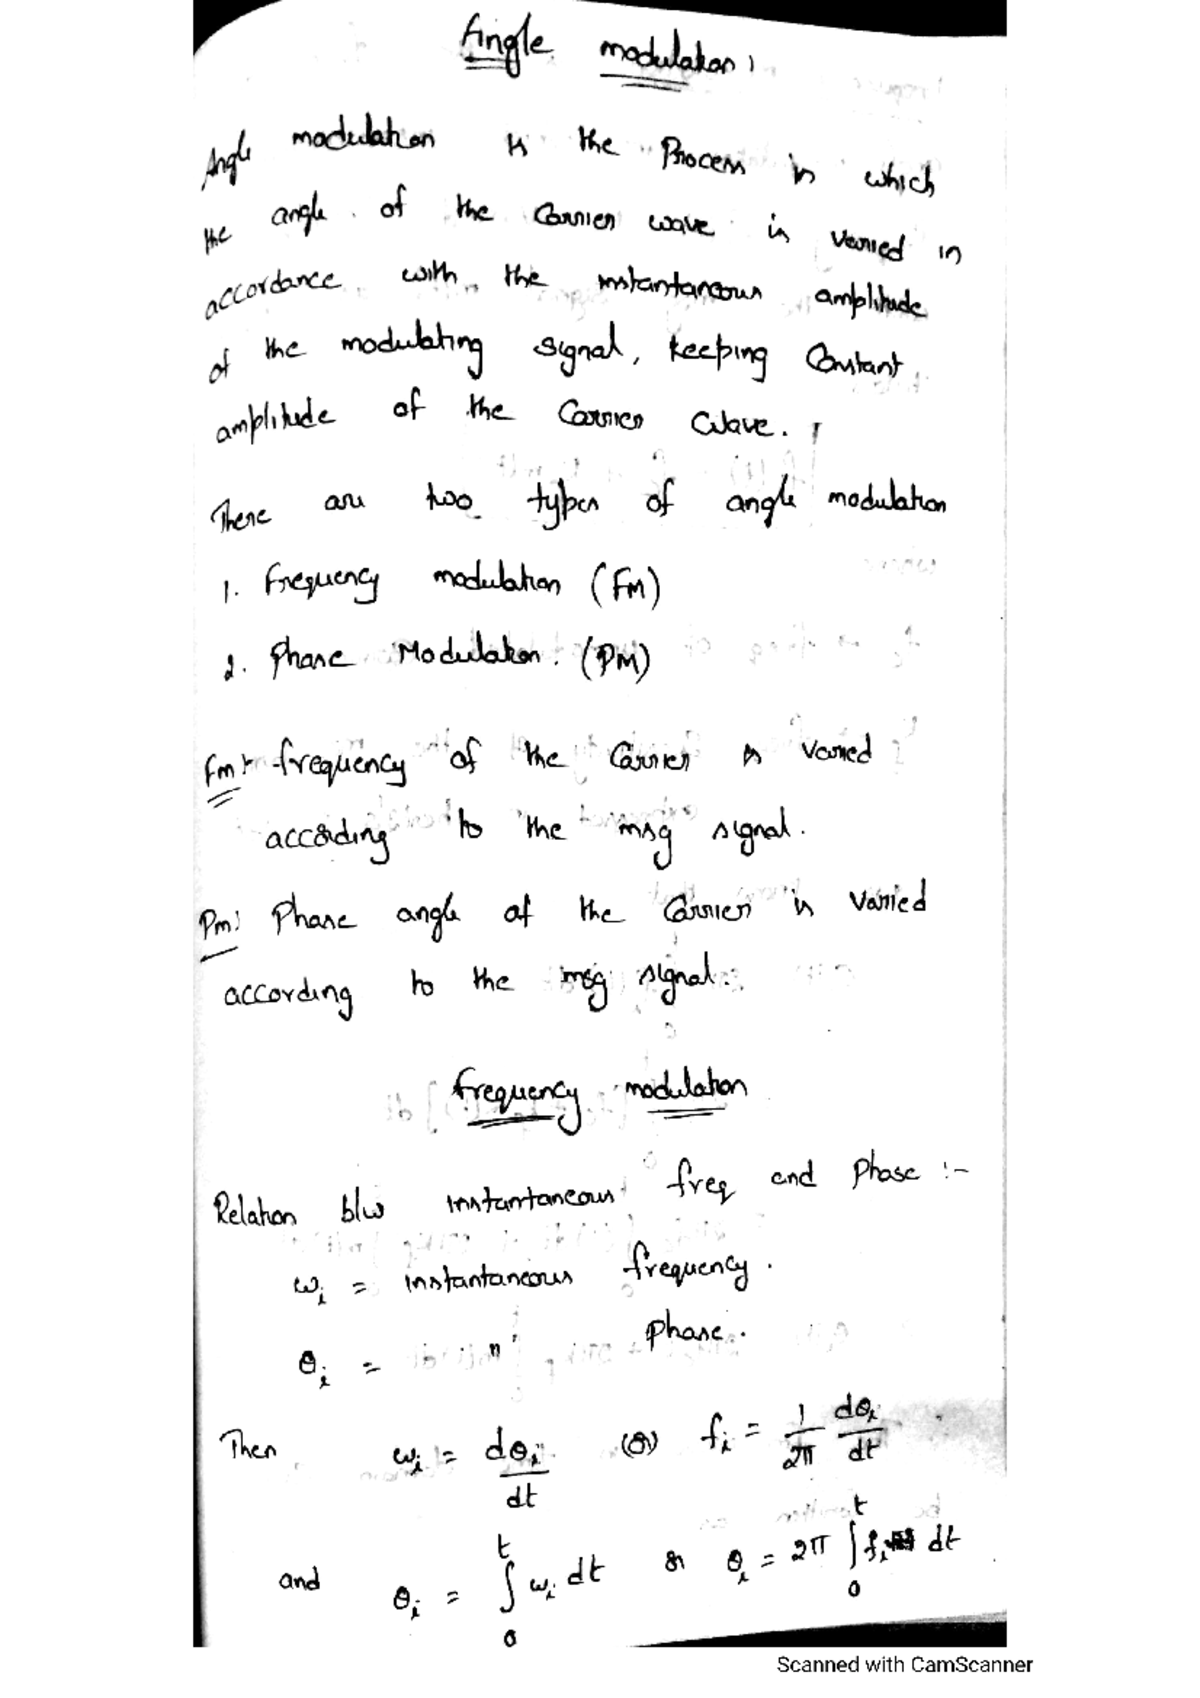 Angle modulation :
Angle modulation is the Process in which
the angle of the Carrier wave is varied in
accordance with the instantaneous amplitude
of the modulating signal, keeping Constant
amplitude of the Carrier Wave.
There are two types of angle modulation
1. Frequency modulation (FM)
2. Phase Modulation. (PM)
Fm :- frequency of the Carrier is varied
according to the msg signal.
Pm: Phase angle of the Carrier is varied
according to the msg signal.
frequency modulation
Relation b/w instantaneous freq and Phase :-
ωi = instantaneous frequency.
θi = " Phase.
Then ωi = dθi/dt (or) fi = 1/2π dθi/dt
and θi = ∫₀ᵗ ωi dt or θi = 2π ∫₀ᵗ fi dt
Scanned with CamScanner